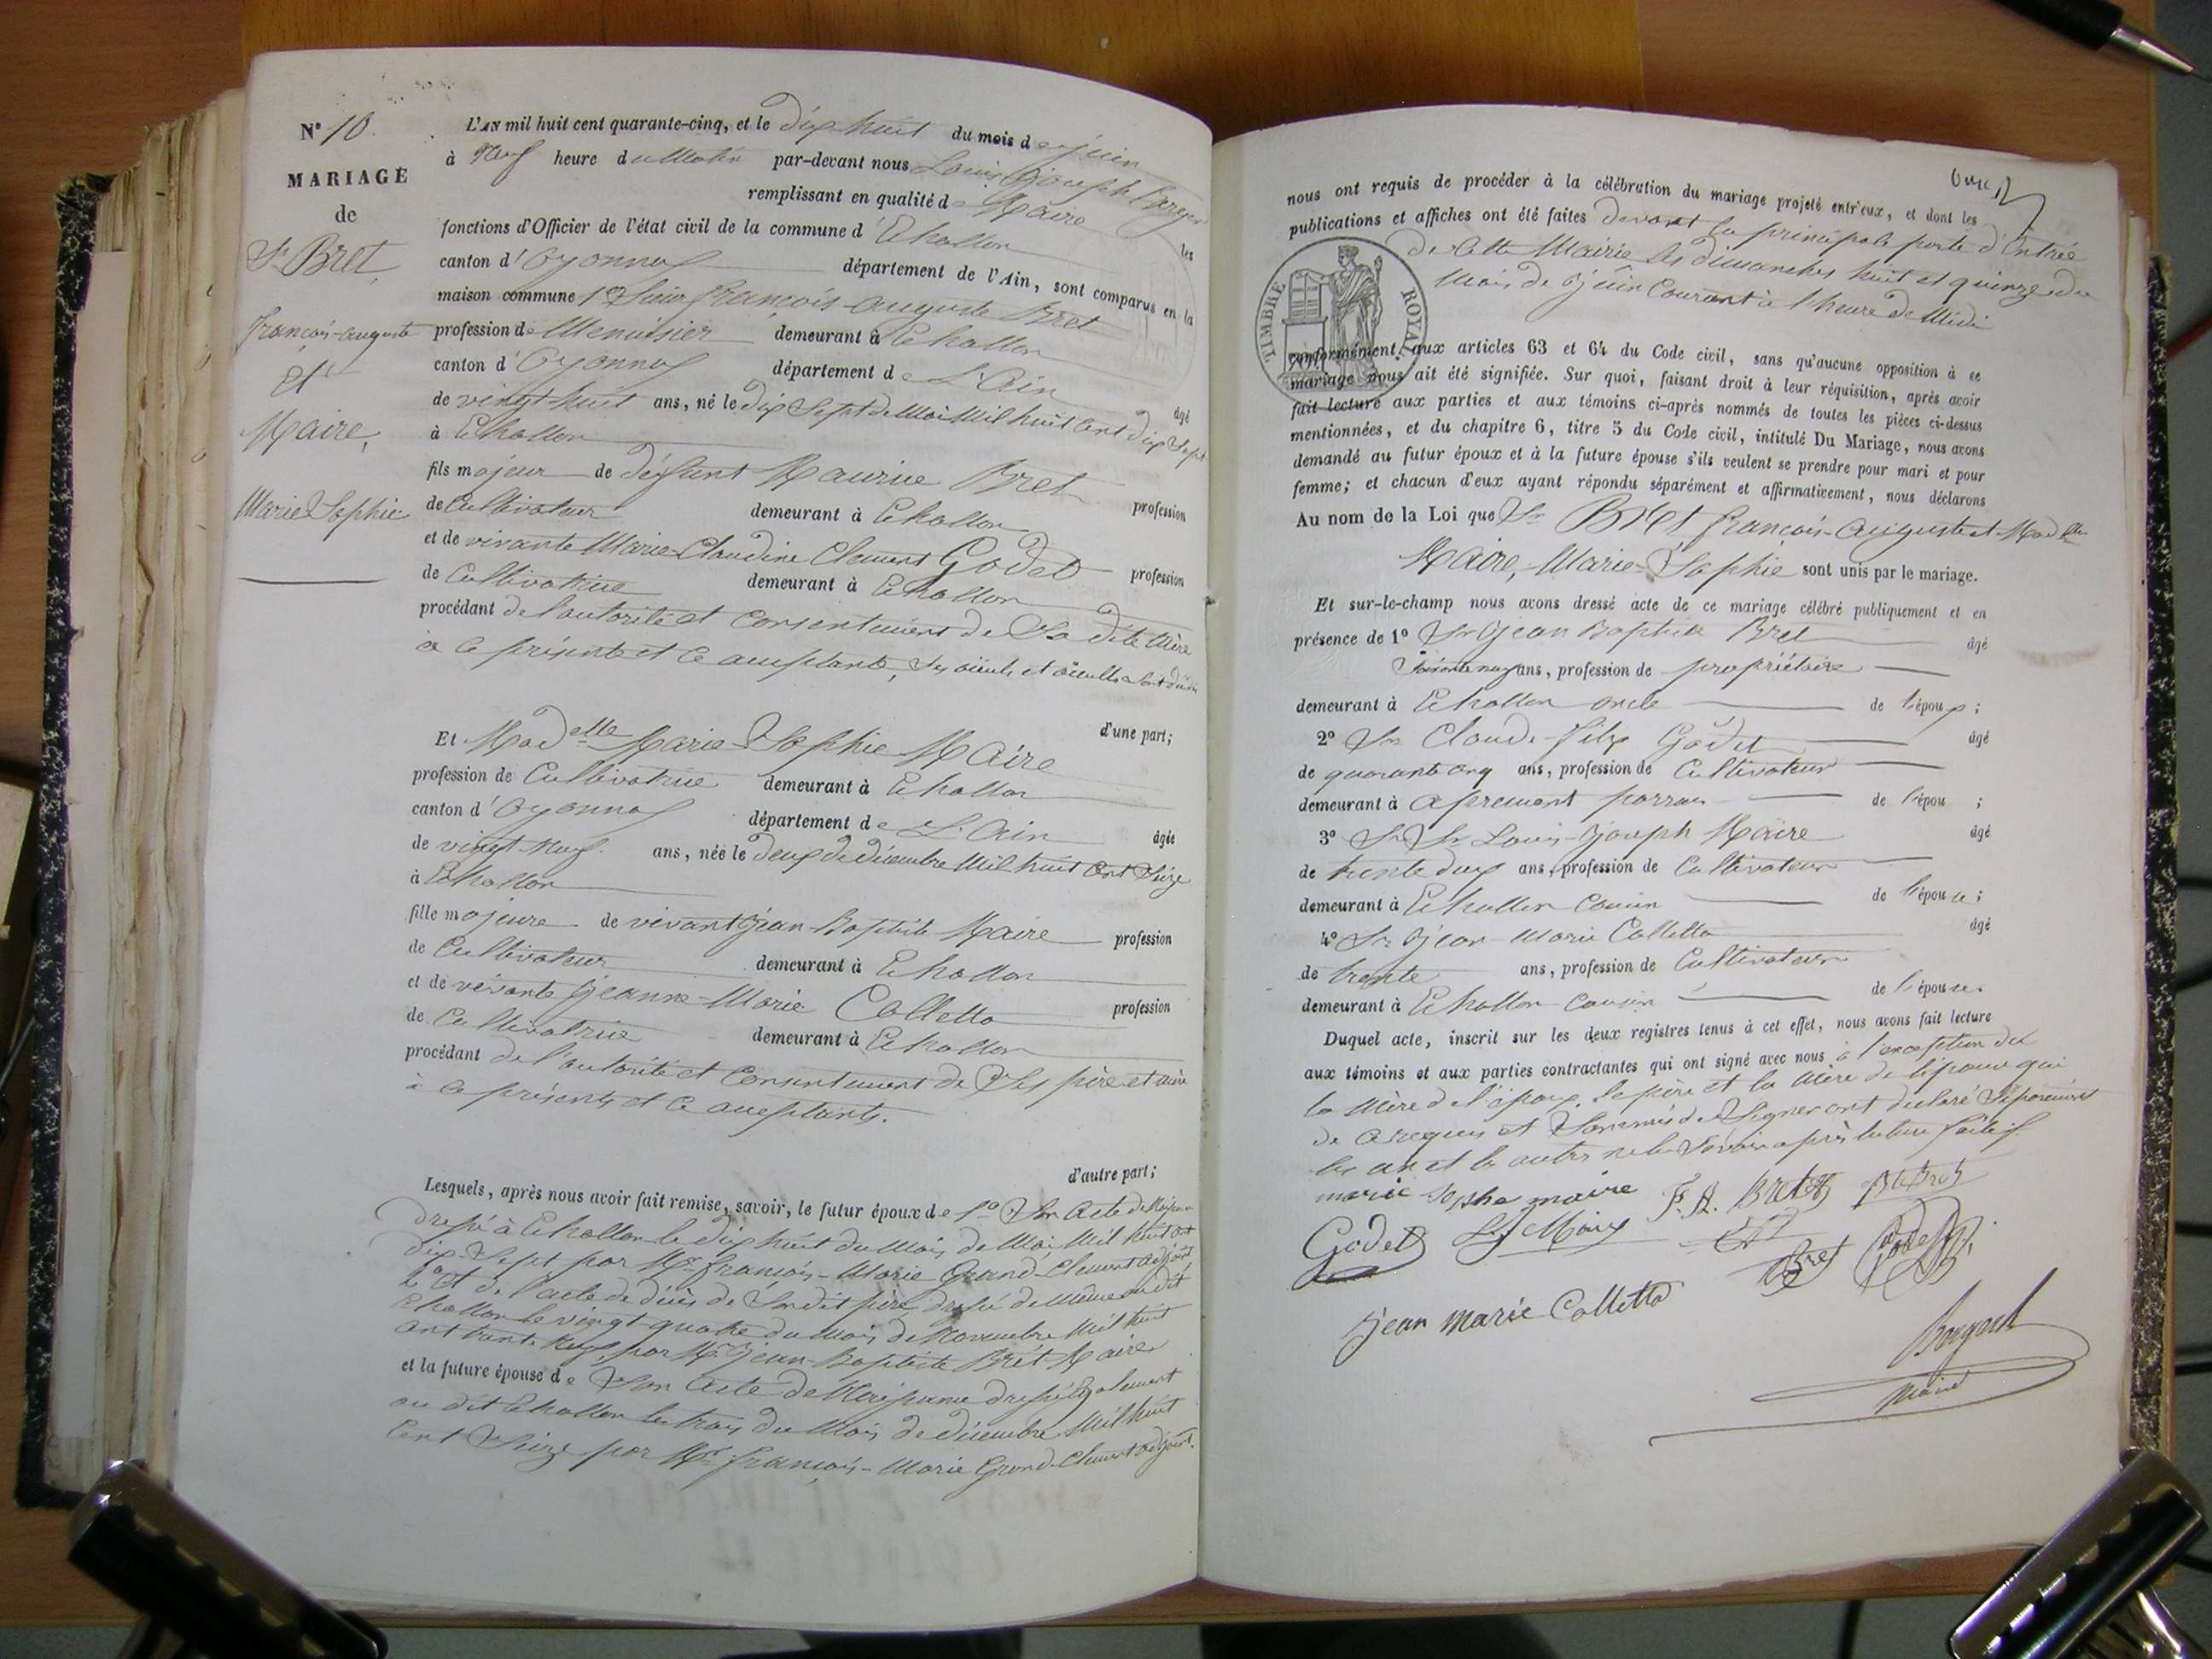 N° 10.
MARIAGE
de
Sr Bret,
François-auguste
Et
Maire,
Marie Sophie
L'AN mil huit cent quarante-cinq, et le dix huit du mois de juin
à neuf heure du Matin par-devant nous Louis Joseph
remplissant en qualité de Maire les
fonctions d'Officier de l'état civil de la commune d'Echallon
canton d'Oyonnax département de l'Ain, sont comparus en la
maison commune 1° Sieur François-auguste Bret
profession de Menuisier demeurant à Echallon
canton d'Oyonnax département de L'Ain âgé
de vingt huit ans, né le dix Sept de Mai Mil huit Cent dix Sept
à Echallon
fils majeur de défunt Maurice Bret profession
de Cultivateur demeurant à Echallon
et de vivante Marie-Claudine Clement Godet profession
de Cultivatrice demeurant à Echallon
procédant de l'autorité et Consentement de Sa dite Mère
à ce présente et ce acceptante, Ses aïeuls et aïeulles Sont
d'une part;
Et Madelle Marie-Sophie Maire
profession de Cultivatrice demeurant à Echallon
canton d'Oyonnax département de L'Ain âgée
de vingt-neuf ans, née le deux de décembre Mil huit Cent Seize
à Echallon
fille majeure de vivant Jean-Baptiste Maire profession
de Cultivateur demeurant à Echallon
et de vivante Jeanne-Marie Colletta profession
de Cultivatrice demeurant à Echallon
procédant de l'autorité et Consentement de Ses père et mère
à ce présents et ce acceptants.
d'autre part;
Lesquels, après nous avoir fait remise, savoir, le futur époux de 1° Son Acte de
dressé à Echallon le dix huit du Mois de Mai Mil huit cent
dix-Sept par Mr François-Marie Grand-Clement adjoint,
2° Et de l'acte de décès de Son dit père, dressé de Même au dit
Echallon le vingt-quatre du Mois de Novembre Mil huit
Cent trente Neuf par Mr Jean-Baptiste Bret Maire
et la future épouse de Son Acte de Naissance dressé Egalement
au dit Echallon le trois du Mois de décembre Mil huit
Cent Seize par Mr François-Marie Grand-Clement adjoint.
nous ont requis de procéder à la célébration du mariage projeté entr'eux, et dont les
publications et affiches ont été faites devant la principale porte d'Entrée
de Cette Mairie les dimanches huit et quinze du
Mois de Juin Courant à l'heure de Midi
TIMBRE ROYAL
conformément aux articles 63 et 64 du Code civil, sans qu'aucune opposition à ce
mariage nous ait été signifiée. Sur quoi, faisant droit à leur réquisition, après avoir
fait lecture aux parties et aux témoins ci-après nommés de toutes les pièces ci-dessus
mentionnées, et du chapitre 6, titre 5 du Code civil, intitulé Du Mariage, nous avons
demandé au futur époux et à la future épouse s'ils veulent se prendre pour mari et pour
femme; et chacun d'eux ayant répondu séparément et affirmativement, nous déclarons
Au nom de la Loi que Sr Bret François-Auguste et Madlle
Maire, Marie-Sophie sont unis par le mariage.
Et sur-le-champ nous avons dressé acte de ce mariage célébré publiquement et en
présence de 1° Sr Jean Baptiste Bret âgé
ans, profession de propriétaire
demeurant à Echallon oncle de l'époux;
2° Sr Claude-félix Godet âgé
de quarante cinq ans, profession de Cultivateur
demeurant à apremont parrain de l'épou ;
3° Sr Sr Louis-Joseph Maire âgé
de trente deux ans, profession de Cultivateur
demeurant à Echallon Cousin de l'épouse;
4° Sr Jean-Marie Colletta âgé
de trente ans, profession de Cultivateur
demeurant à Echallon Cousin de l'épouse.
Duquel acte, inscrit sur les deux registres tenus à cet effet, nous avons fait lecture
aux témoins et aux parties contractantes qui ont signé avec nous à l'exception de
la Mère de l'époux, le père et la Mère de l'épouse qui
de ce requis et Sommés de Signer ont déclaré Séparément
les un et les autres ne le Savoir après lecture faite
marie sophe maire F. A. Bret
Godet Maire Bret Godet
jean marie Colletta
maire